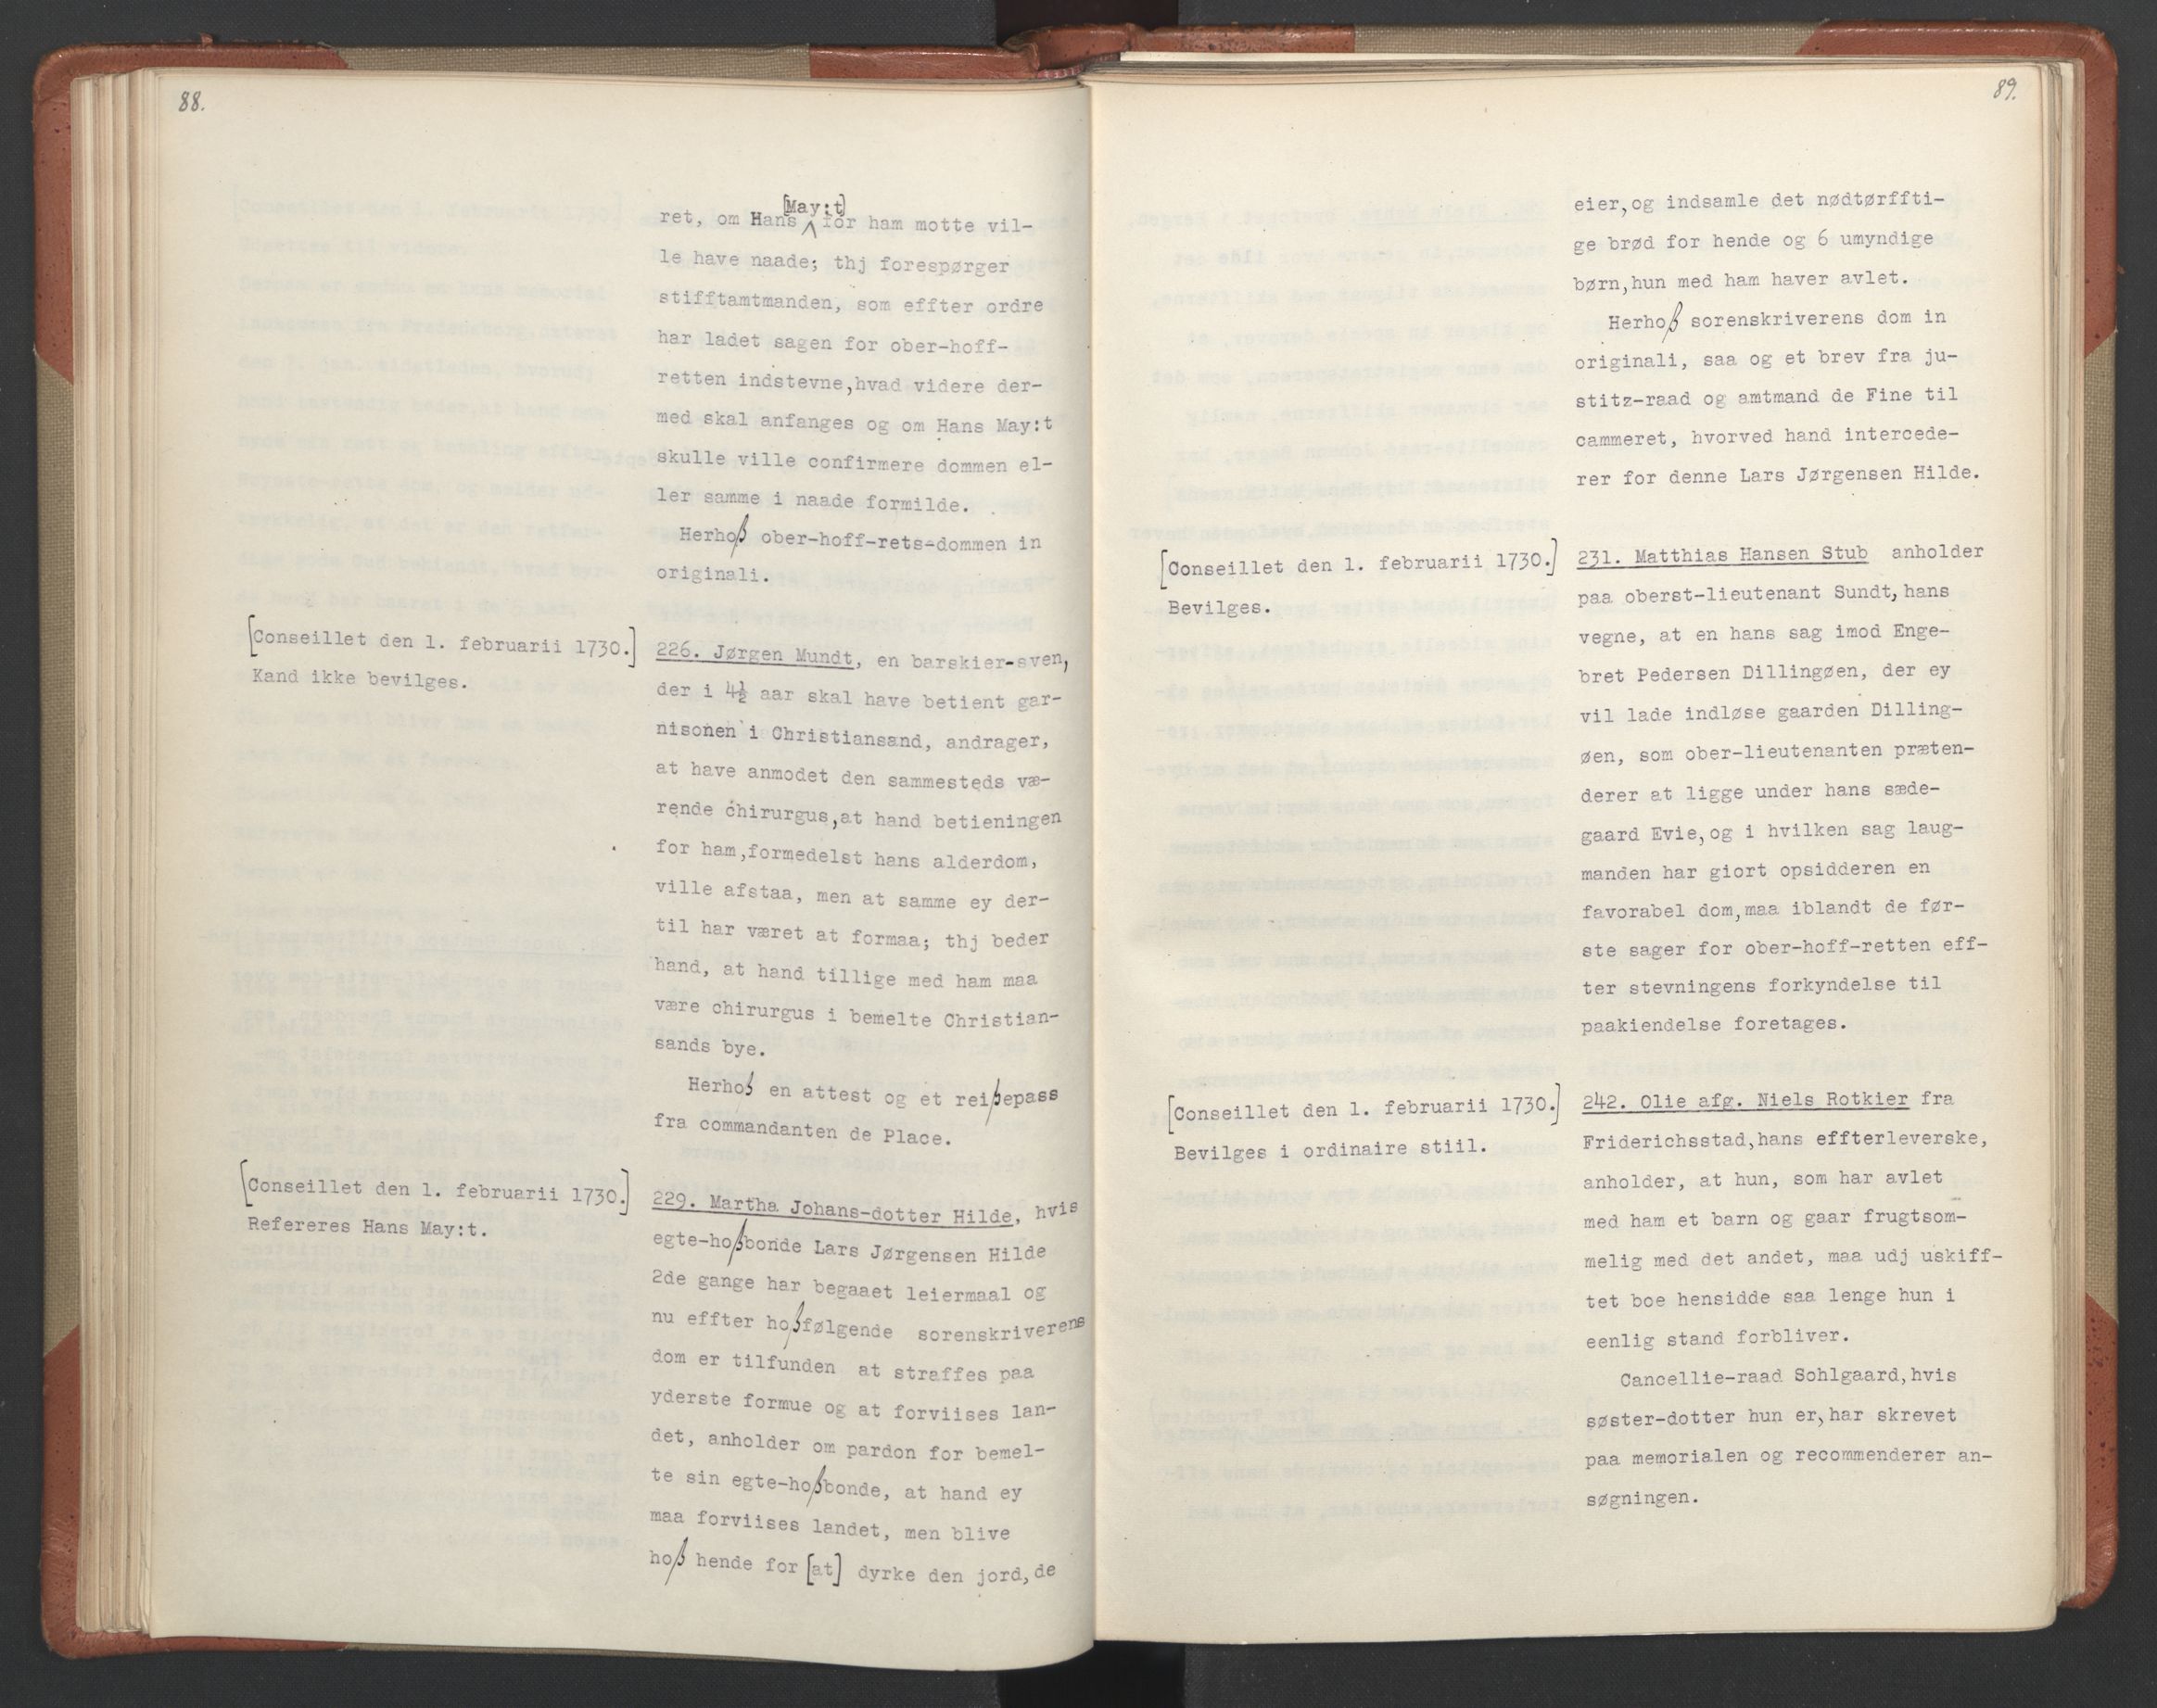 88.
[May:t]
ret, om Hans ^ for ham motte vil-
le have naade; thj forespørger
stifftamtmanden, som effter ordre
har ladet sagen for ober-hoff-
retten indstevne,hvad videre der-
med skal anfanges og om Hans May:t
skulle ville confirmere dommen el-
ler samme i naade formilde.
Herhoß ober-hoff-rets-dommen in
originali.
[Conseillet den 1. februarii 1730.]
Kand ikke bevilges.
226. Jørgen Mundt, en barskier-sven,
der i 4½ aar skal have betient gar-
nisonen i Christiansand, andrager,
at have anmodet den sammesteds væ-
rende chirurgus,at hand betieningen
for ham,formedelst hans alderdom,
ville afstaa, men at samme ey der-
til har været at formaa; thj beder
hand, at hand tillige med ham maa
være chirurgus i bemelte Christian-
sands bye.
Herhoß en attest og et reißepass
fra commandanten de Place.
[Conseillet den 1. februarii 1730.]
Refereres Hans May:t.
229. Martha Johans-dotter Hilde, hvis
egte-hoßbonde Lars Jørgensen Hilde
2de gange har begaaet leiermaal og
nu effter hoßfølgende sorenskriverens
dom er tilfunden at straffes paa
yderste formue og at forviises lan-
det, anholder om pardon for bemel-
te sin egte-hoßbonde, at hand ey
maa forviises landet, men blive
hoß hende for [at] dyrke den jord,de
89.
eier,og indsamle det nødtørffti-
ge brød for hende og 6 umyndige
børn,hun med ham haver avlet.
Herhoß sorenskriverens dom in
originali, saa og et brev fra ju-
stitz-raad og amtmand de Fine til
cammeret, hvorved hand intercede-
rer for denne Lars Jørgensen Hilde.
[Conseillet den 1. februarii 1730.]
Bevilges.
231. Matthias Hansen Stub anholder
paa oberst-lieutenant Sundt,hans
vegne, at en hans sag imod Enge-
bret Pedersen Dillingøen, der ey
vil lade indløse gaarden Dilling-
øen, som ober-lieutenanten præten-
derer at ligge under hans sæde-
gaard Evie,og i hvilken sag laug-
manden har giort opsidderen en
favorabel dom,maa iblandt de før-
ste sager for ober-hoff-retten eff-
ter stevningens forkyndelse til
paakiendelse foretages.
[Conseillet den 1. februarii 1730.]
Bevilges i ordinaire stiil.
242. Olie afg. Niels Rotkier fra
Friderichsstad,hans effterleverske,
anholder, at hun, som har avlet
med ham et barn og gaar frugtsom-
melig med det andet, maa udj uskiff-
tet boe hensidde saa lenge hun i
eenlig stand forbliver.
Cancellie-raad Sohlgaard,hvis
søster-dotter hun er,har skrevet
paa memorialen og recommenderer an-
søgningen.